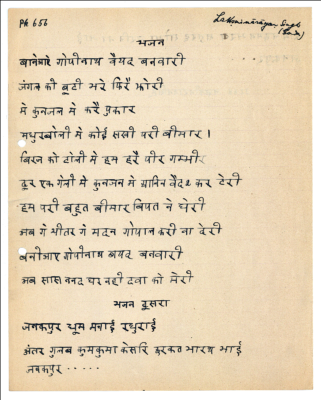 PK 656
Laxminarayan Singh
भजन
बानेआरे गोपीनाथ बैयद बनवारी
जंगल की बूटी भरे फिरै झोरी
मे कुनजन मे करै पुकार
मधुरबोली मे कोई सखी परी बीमार।
बिरज की टोली मे हम हरै पीर गम्भीर
टूर एक गेली मे कुनजन मे बैदध कर टेरी
हम परी बहुत बीमार बिपत ने घेरी
अब गे भीतर गे मदन गोपाल करी ना देरी
बनीआए गोपीनाथ बयद बनवारी
अब सास ननद घर नही दवा को मेरी
भजन दूसरा
जनकपुर धूम मचाई रघुराई
अंतर गुलाब कुमकुमा केसरि भारथ भाई
जनकपुर .....